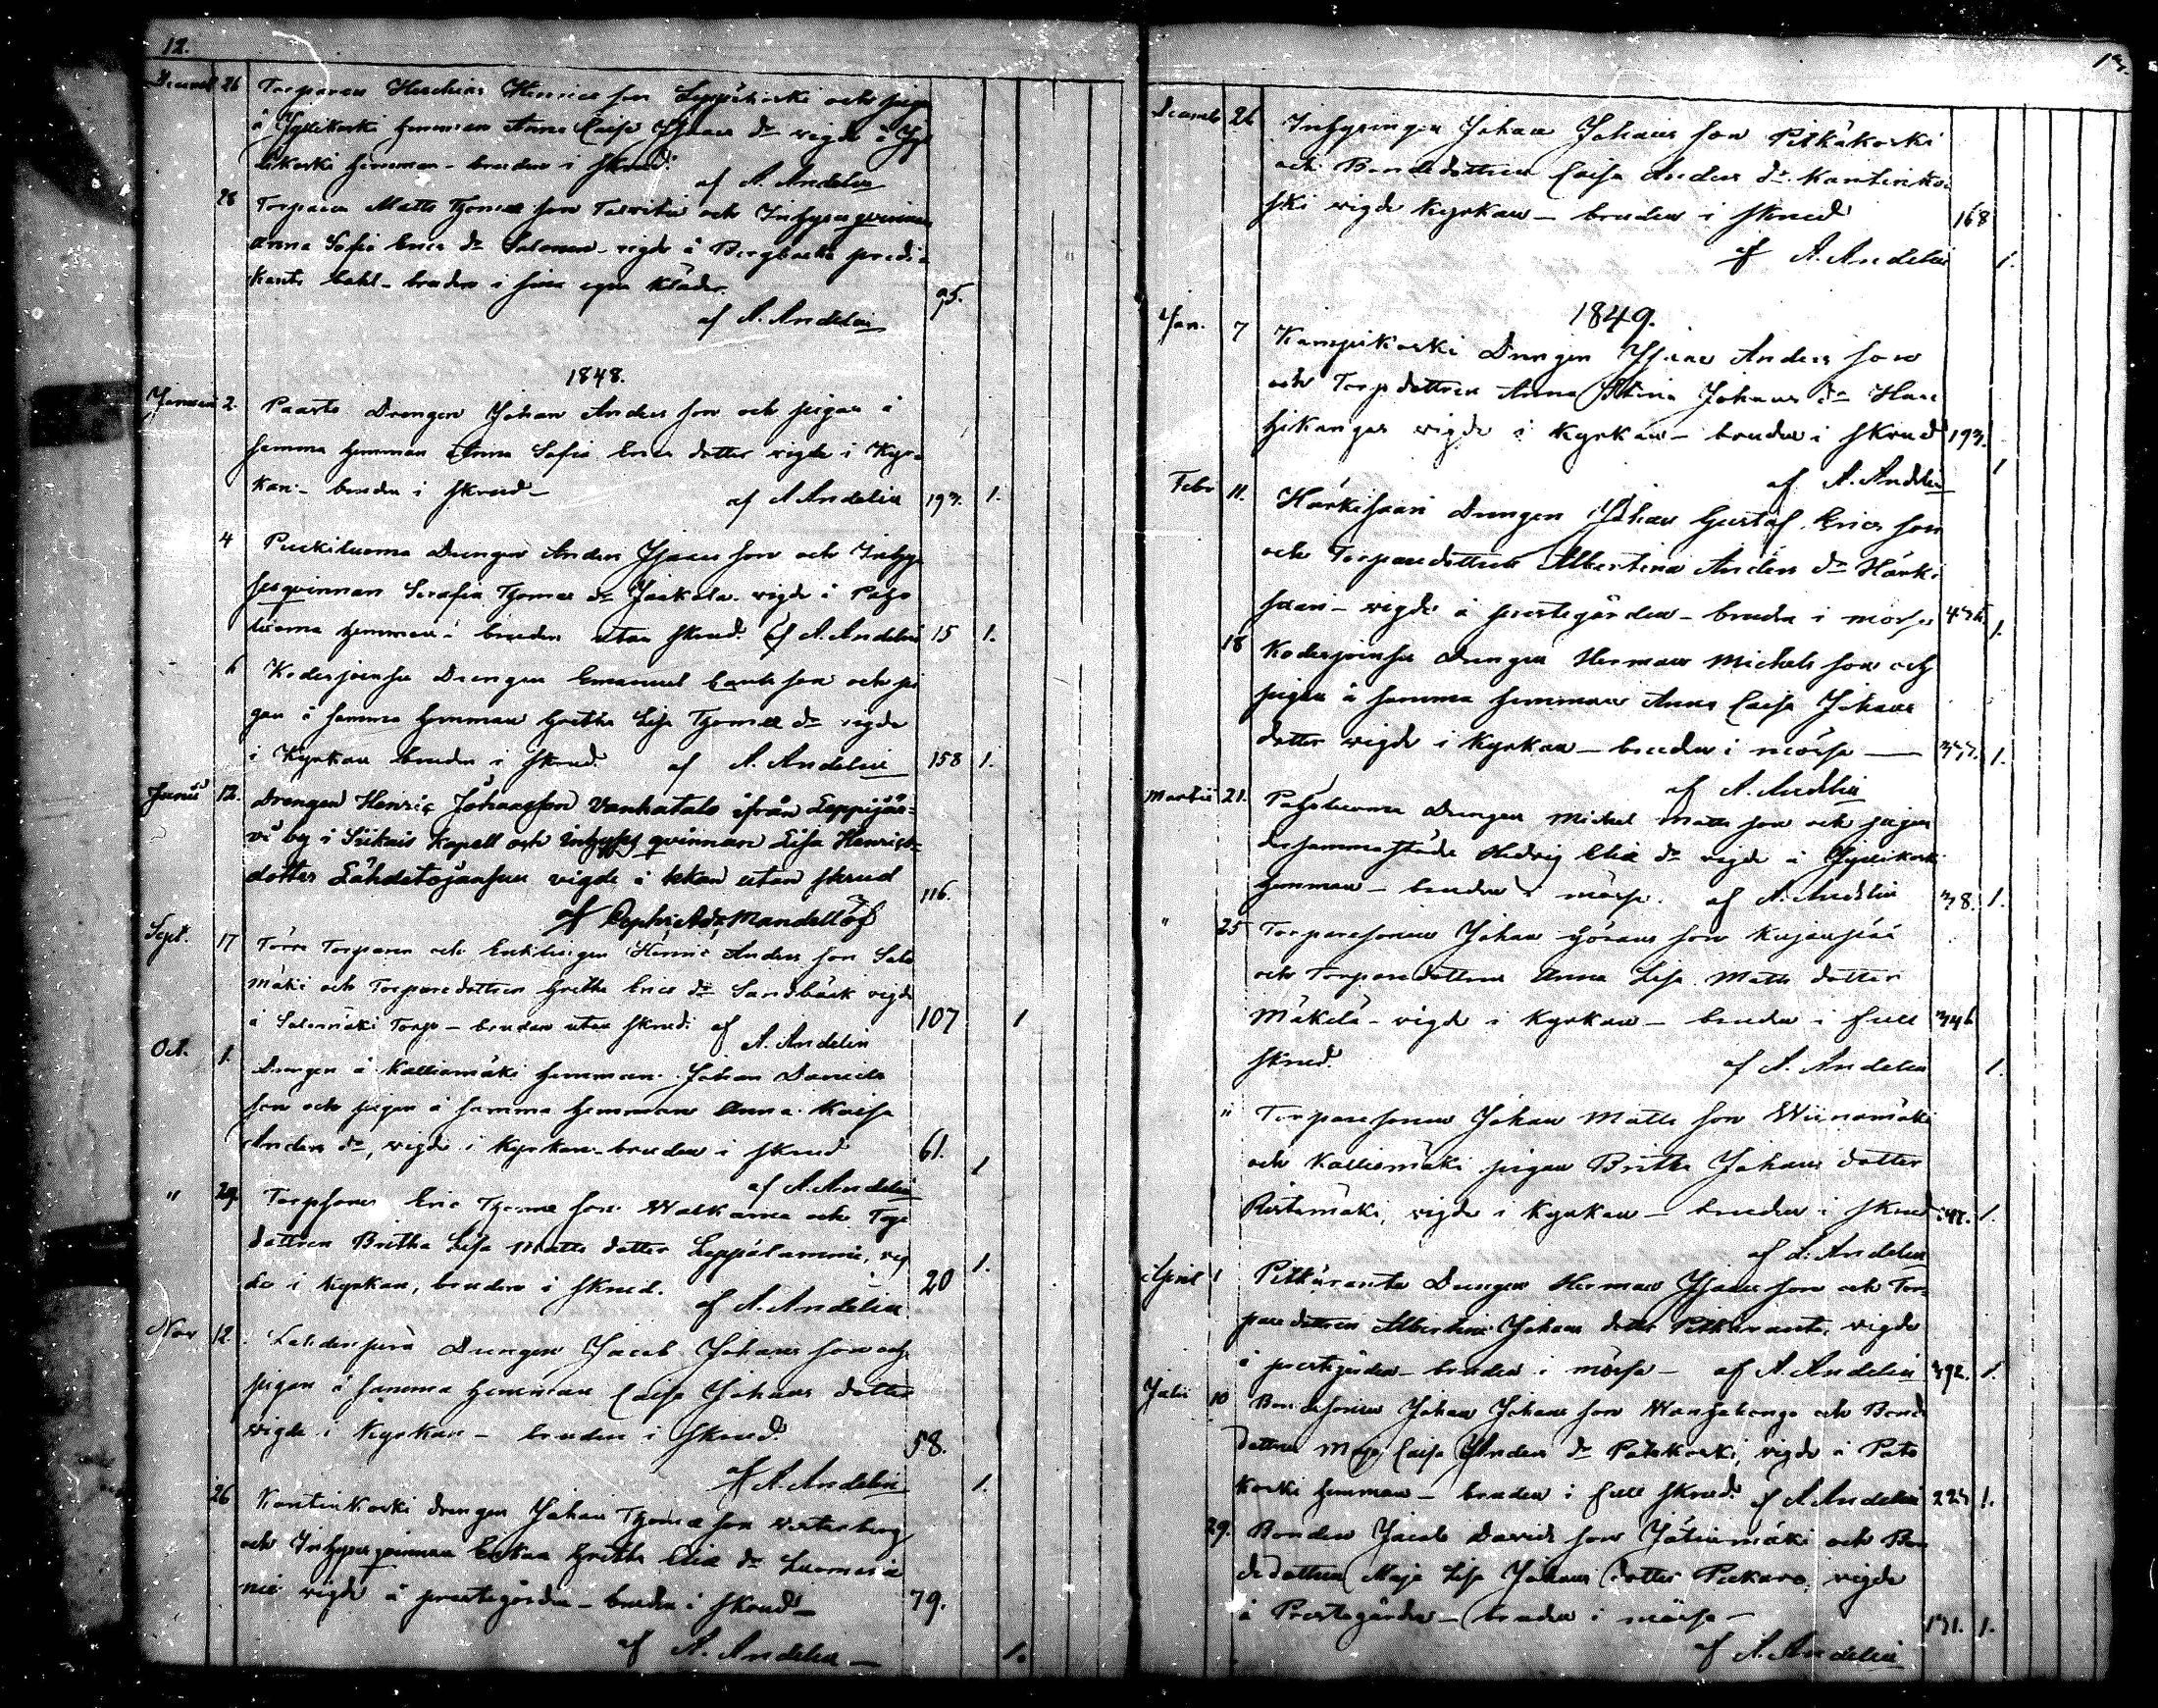 12.
Decemb 26 Torparen Henric son Leppäkoski och pigan
å Jyllikoski hemman Anna Caisa Isaacs dr vigde å Jyl
likoski hemman - bruden i skrud.
af A. Andelin
28 Torparen Matts Thomas son och Inhyses qvinnan
Anna Sofia Erics dr Salonen - vigde å Bergbacka predi-
kants bohl - bruden i sina egna kläder. 95.
af A. Andelin
1848.
Januari 2. Paarto Drengen Johan Anders son och pigan å
samma hemman Anna Sofia Erics dotter vigde i Kyr-
kan - bruden i skrud - af A Andelin 193. 1.
4 Puckiluoma Drengen Anders Isaacs son och Inhy-
sesqvinnan Serafia Thomas dr Jaskala vigde i Paho
luoma hemman - bruden utan skrud. af A. Andelin 15 1.
6 Koderjoensu Drengen Emanuel son och pi
gan å samma hemman Gretha Lisa Thomas dr vigde
i Kyrkan bruden i skrud. af A. Andelin 158 1.
Junii 12. Drengen Henric Johansson Vanhatalo ifrån Leppijär-
vi by i Siikais Kapell och inhyses qvinnan Lisa Henrics-
dotter Lähdetojansuu vigde i kkan utan skrud 116.
af Mandellöf
Sept. 17 Torparen och Enklingen Henric Anders son Salo
mäki och Torparedottren Gretha Erics dr Sandbäck vigde
å Salomäki Torp - bruden utan skrud. af A. Andelin 107 1
Oct. 1. Drengen å Kallismäki hemman Johan Daniels
son och pigan å samma hemman Anna Kaisa
Anders dr, vigde i Kyrkan - bruden i skrud 61. 1
af A. Andelin
" 29. Torpsonen Eric Thomas son Walkama och Torp
dottren Britha Lisa Matts dotter Leppälammi, vig
de i Kyrkan, bruden i skrud. af A. Andelin 20 1.
Nov 12. Drengen Jacob Johans son och
pigan å samma hemman Caisa Johans dotter
vigde i Kyrkan - bruden i skrud. 58.
af A. Andelin 1.
26 Kantinkoski drengen Johan Thomas son Westerberg
och Inhyses qvinnan Enkan Gretha Elia dr Luomi
vigde å prestegården - bruden i skrud - 79.
af A. Andelin - 1.
13.
Decemb 26 Inhysingen Johan Johans son Pitkäkoski
och Bondedottren Caisa Anders dr Kantinko
ski vigde Kyrkan - bruden i skrud 168
af A. Andelin 1.
1849.
Jan. 7 Kampikoski Drengen Isaac Anders son
och Torpdottren Anna Stina Johans dr Har
jukangas vigde i Kyrkan - bruden i skrud 193.
af A. Andelin 1
Febr 11. Härkisaari Drengen Johan Gustaf Erics son
och Torparedottren Albertina Anders dr Härki
saari - vigde å prestegården - bruden i mössa 1.
18 Koderjoensu Drengen Herman Michels son och
pigan å samma hemman Anna Caisa Johans
dotter vigde i Kyrkan - bruden i mössa - 1.
af A. Andelin
Martii 21. Paholuoma Drengen Michel Matts son och pigan
dersammastädes Hedvig Elia dr vigde å Jyllikoski
hemman - bruden i mössa. af A. Andelin 38. 1.
" 25 Torparesonen Johan Görans son Kujanpää
och Torparedottren Anna Lisa Matts dotter
Mäkelä - vigde i Kyrkan - bruden i full 346
skrud. af A. Andelin 1.
" Torparesonen Johan Matts son Wiinamäki
och Kallismäki pigan Britha Johans dotter
Ristimäki, vigde i Kyrkan - bruden i skrud 1.
af A. Andelin
April 1 Pitkäranta Drengen Herman Isaacs son och Tor-
paredottren Albertina Johans dotter Pitkäranta, vigde
å prestgården - bruden i mössa - af A. Andelin 392. 1.
Julii 10 Bondesonen Johan Johans son Wanhakongo och Bond
dottren Maja Caisa Anders dr Patokoski, vigde å Pato
koski hemman - bruden i full skrud. af A. Andelin 223 1.
29. Bonden Jacob Davids son Jätinmäki och Bon
dedottren Maja Lisa Johans dotter Puckaro, vigde
å Prestegården - bruden i mössa - 131. 1.
af A. Andelin